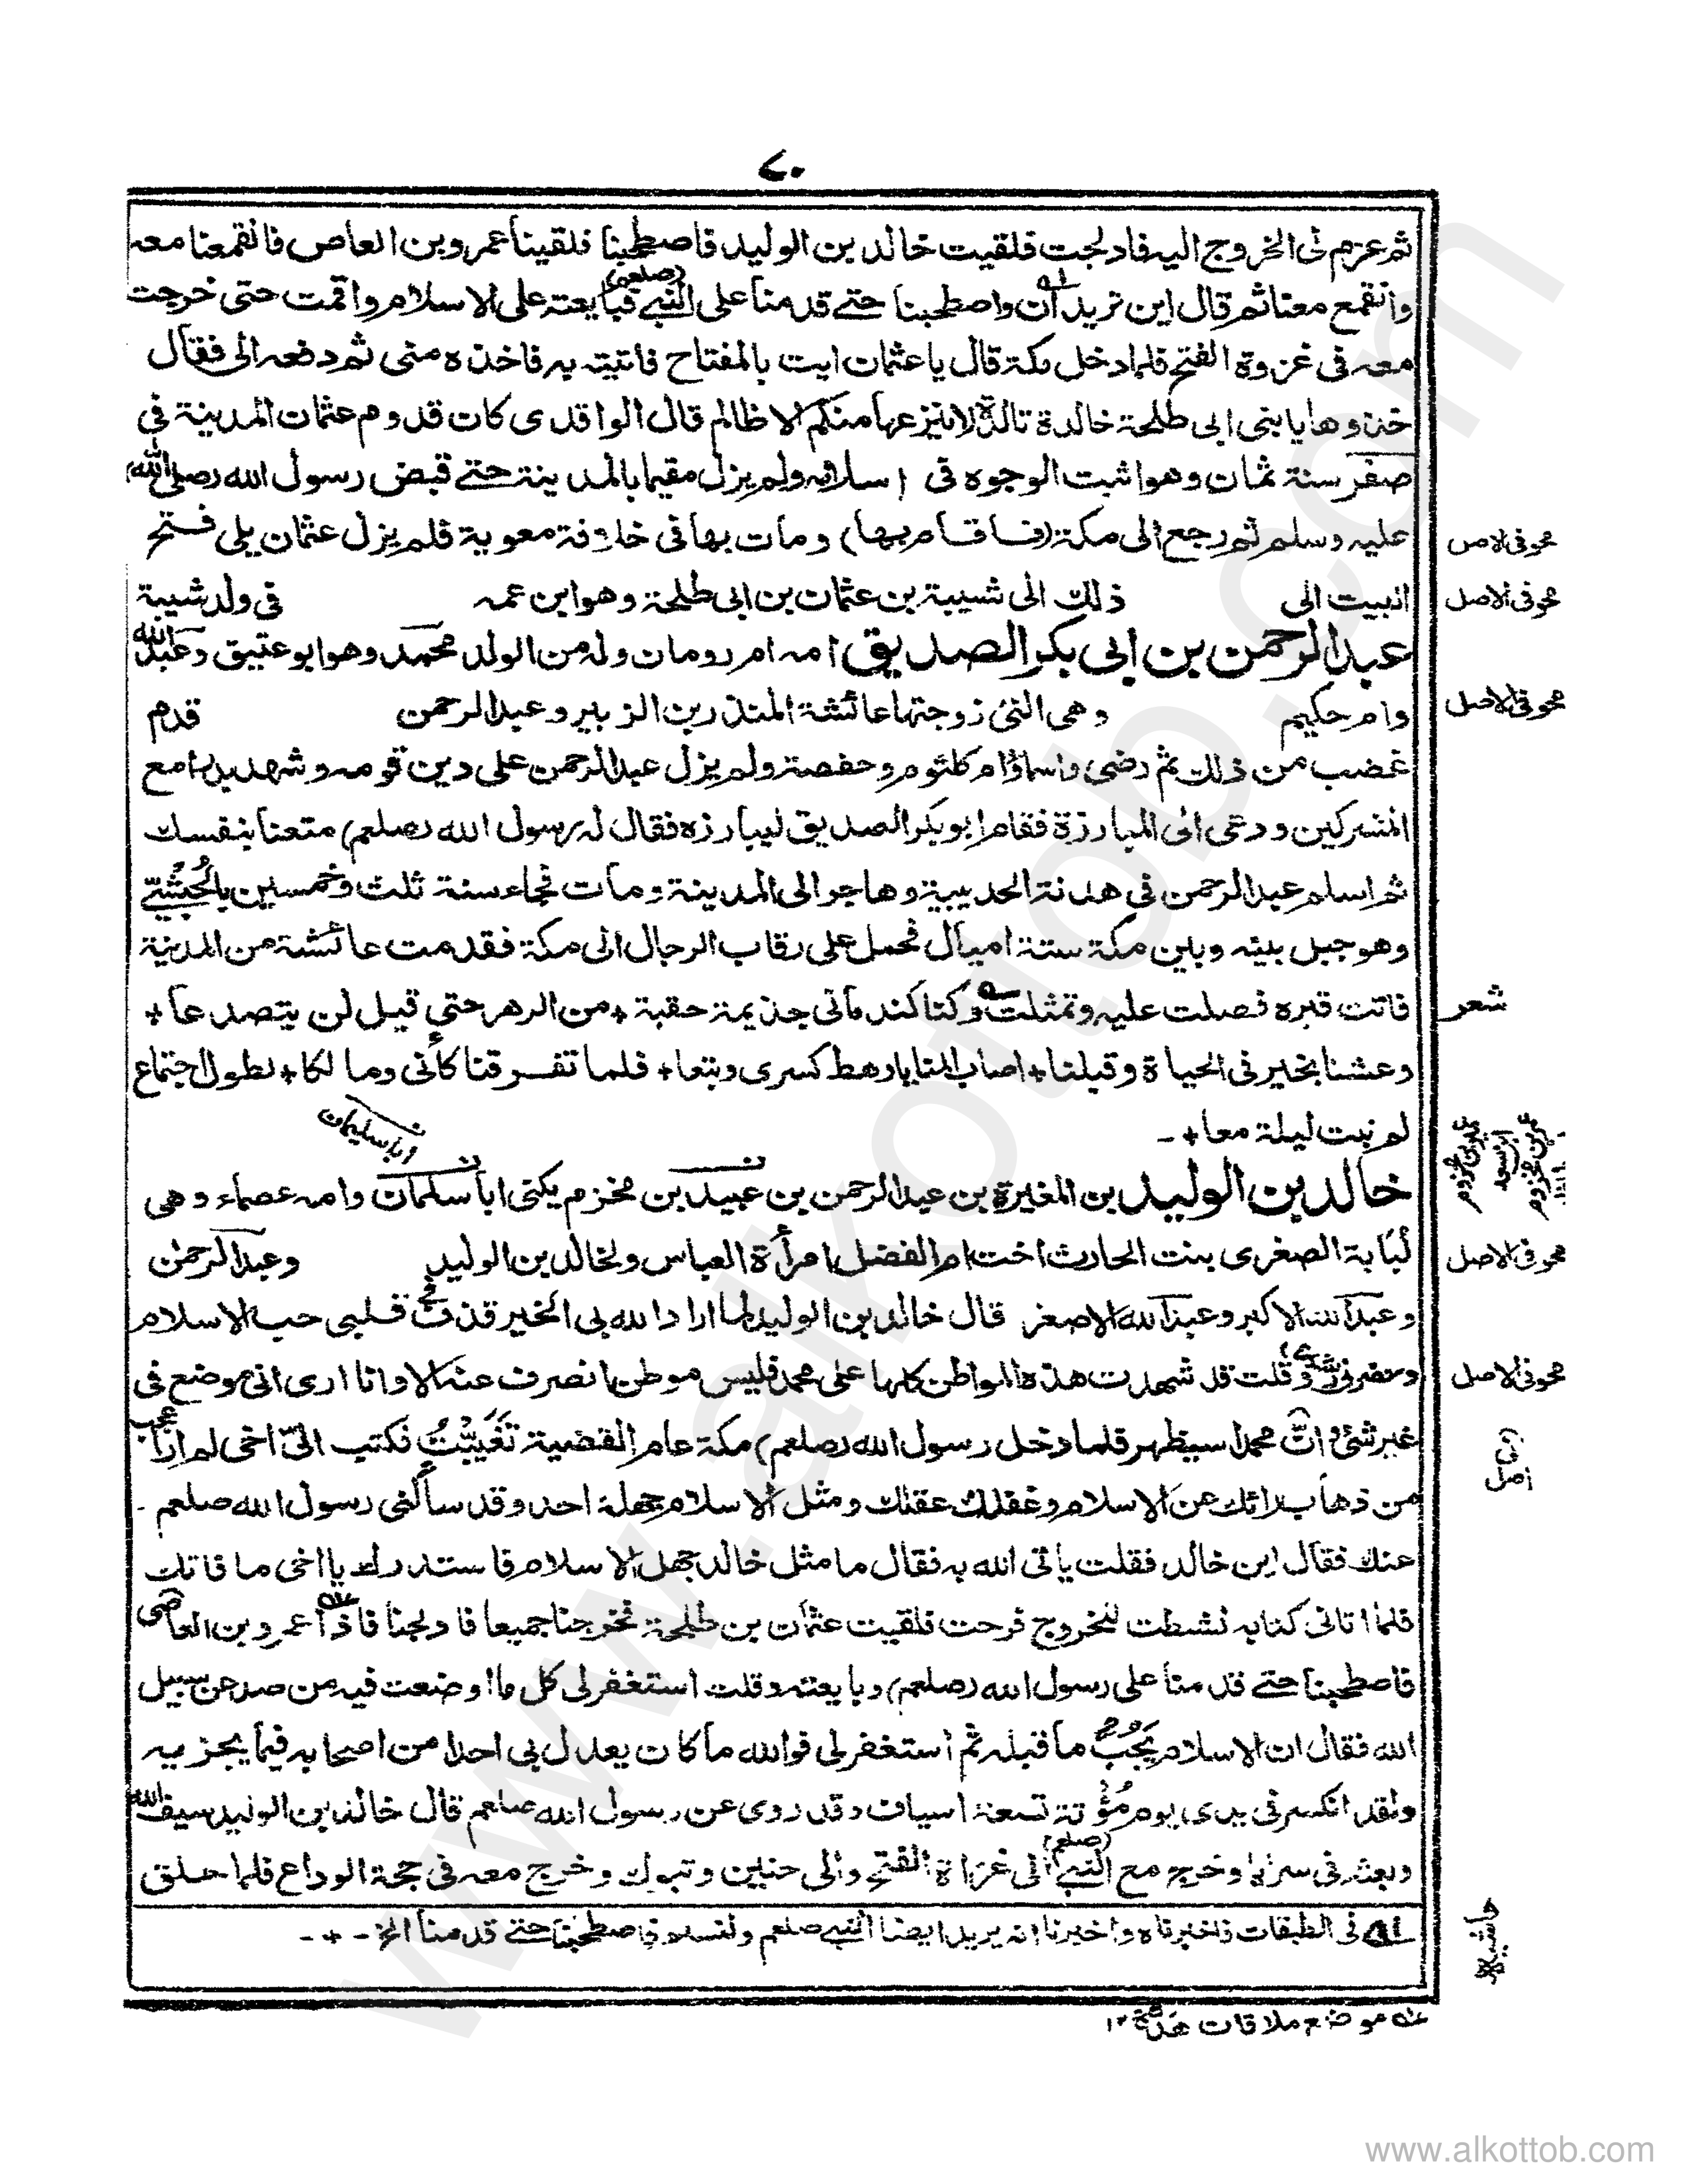 ٧٠
ثم عزم لى الخروج اليه فادلجت فلقيت خالد بن الوليد فاصطحبنا فلقينا عمرو بن العاص فانقمعنا معه
وانقمع معنا ثم قال اين تريدان واصطحبنا حتے قدمنا على النبے (صلعم) فبايعته على الاسلام واقمت حتى خرجت
معه فى غزوة الفتح فلما دخل مكة قال يا عثمان ايت بالمفتاح فاتيته به فاخذه منى ثم دفعه الى فقال
خذوها يا بنى ابى طلحة خالدة تالدة لا ينزعها منكم الا ظالم قال الواقدى كان قدوم عثمان المدينة فى
صفر سنة ثمان وهو اثبت الوجوه فى اسلامه ولم يزل مقيما بالمدينة حتے قبض رسول الله (صلى الله
عليه وسلم ثم رجع الى مكة (فاقام بها) ومات بها فى خلافة معوية فلم يزل عثمان يلى فتح
محو فى الاصل
البيت الى ذلك الى شيبة بن عثمان بن ابى طلحة وهو ابن عمه فى ولد شيبة
محو فى الاصل
عبد الرحمن بن ابى بكر الصديق امه ام رومان وله من الولد محمد وهو ابو عتيق وعبد الله
وام حكيم وهى التى زوجتها عائشة المنذر بن الزبير وعبد الرحمن قدم
محو فى الاصل
غضب من ذلك ثم رضى واسماؤ ام كلثوم وحفصة ولم يزل عبد الرحمن على دين قومه وشهد بدرا مع
المشركين ودعى الى المبارزة فقام ابو بكر الصديق ليبارزه فقال له رسول الله (صلعم) متعنا بنفسك
ثم اسلم عبد الرحمن فى هدنة الحديبية وهاجر الى المدينة ومات فجاء سنة ثلث وخمسين بالحُبُشّے
وهو جبل بينه وبين مكة ستة اميال فحمل على رقاب الرجال الى مكة فقدمت عائشة من المدينة
فاتت قبره فصلت عليه وتمثلت وكنا كندمانى جذيمة حقبة + من الدهر حتى قيل لن يتصدعا +
شعر
وعشنا بخير فى الحياة وقبلنا + اصاب المنايا رهط كسرى وتبعا + فلما تفرقنا كأنى ومالكا + لطول اجتماع
لم نبت ليلة معا + -
ابا سليمان
خالد بن الوليد بن المغيرة بن عبد الرحمن بن عبيد بن مخزم يكنى ابا سلمان وامه عصماء وهى
لُبَابة الصغرى بنت الحارث اخت ام الفضل امرأة العباس ولخالد بن الوليد وعبد الرحمن
محو فى الاصل
وعبد الله الاكبر وعبد الله الاصغر قال خالد بن الوليد لما اراد الله بى الخير قذف فى قلبى حب الاسلام
وحضرنى رشدى وقلت قد شهدت هذه المواطن كلها على محمد فليس موطن انصرف عنه الا وانا ارى انى موضع فى
محو فى الاصل
غير شئ وانّ محمدا سيظهر فلما دخل رسول الله (صلعم) مكة عام القضية تَغَيَّبْتُ فكتب الىّ اخى لم ار اعجب
من ذهاب رائك عن الاسلام وعقلك عقلك ومثل الاسلام جهلة احد وقد سألنى رسول الله صلعم -
عنك فقال اين خالد فقلت ياتى الله به فقال ما مثل خالد جهل الاسلام فاستدرك يا اخى ما فاتك
فلما اتانى كتابه نشطت للخروج فرحت فلقيت عثمان بن طلحة فخرجنا جميعا فادلجنا فاذا عمرو بن العاصى
فاصطحبنا حتے قدمنا على رسول الله (صلعم) وبايعته وقلت استغفر لى كل ما اوضعت فيه من صد عن سبيل
الله فقال ان الاسلام يَجُبُّ ما قبله ثم استغفر لى فوالله ما كان يعدل بى احدا من اصحابه فيما يجزيه
ولقد انكسر فى يدى يوم مُؤْتة تسعة اسياف وقد روى عن رسول الله صلعم قال خالد بن الوليد سيف الله
وبعثه فى سرايا وخرج مع النبے (صلعم) الى غزاة الفتح والى حنين وتبوك وخرج معه فى حجة الوداع فلما حلق
فى الطبقات فاخبرناه واخبرنا انه يريد ايضا النبے صلعم ولنسلم فاصطحبنا حتے قدمنا الخ - + -
حاشيه
موضع ملاقات هَدّة ١٢